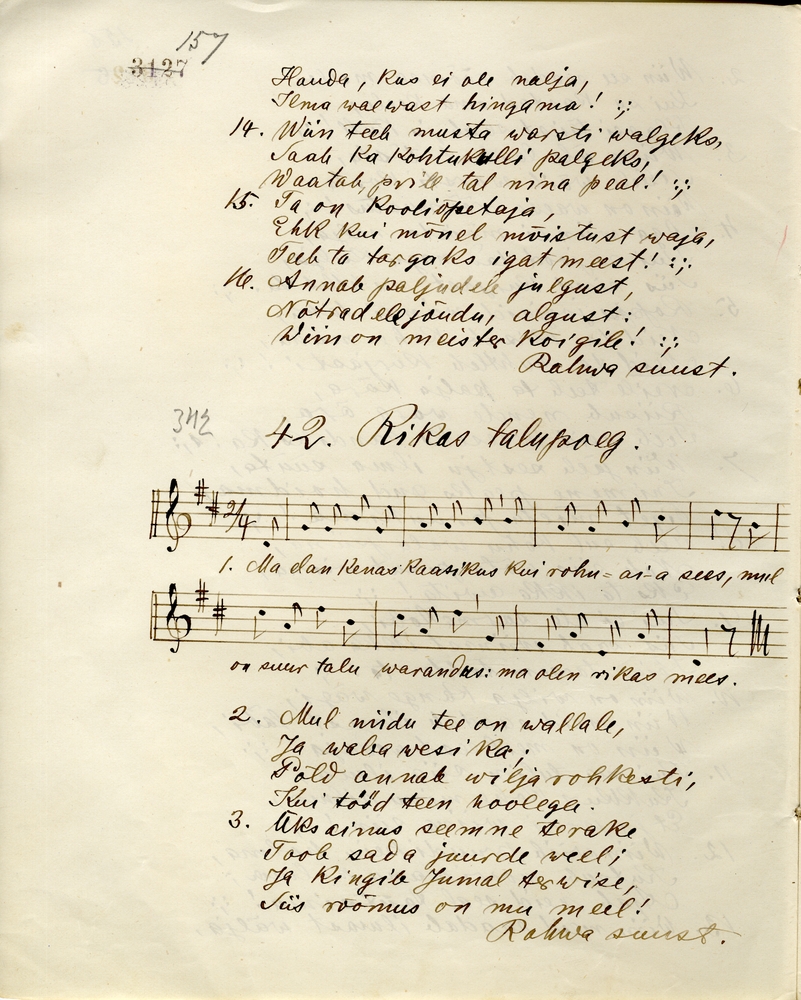 157
3127
Hauda, kus ei ole nalja,
Ilma waewast hingama! :;:
14. Wiin teeb musta warsti walgeks,
Saab ka kohtukulli palgeks,
Waatab, prill tal nina peal! :;:
15. Ta on kooliõpetaja,
Ehk kui mõnel mõistust waja,
Teeb ta targaks igat meest! :;:
16. Annab paljudele julgust,
Nõtradele jõudu, algust:
Wiin on meister kõigile! :;:
Rahwa suust.
342
42. Rikas talupoeg.
2/4
1. Ma elan kenas kaasikus kui rohu=ai-a sees, mul
on suur talu warandus: ma olen rikas mees.
2. Mul niidu tee on wallale,
Ja waba wesi ka;
Põld annab wilja rohkesti,
Kui tööd teen hoolega.
3. Üks ainus seemne terake
Toob sada juurde weel;
Ja kingib Jumal terwise,
Siis rõõmus on mu meel!
Rahwa suust.